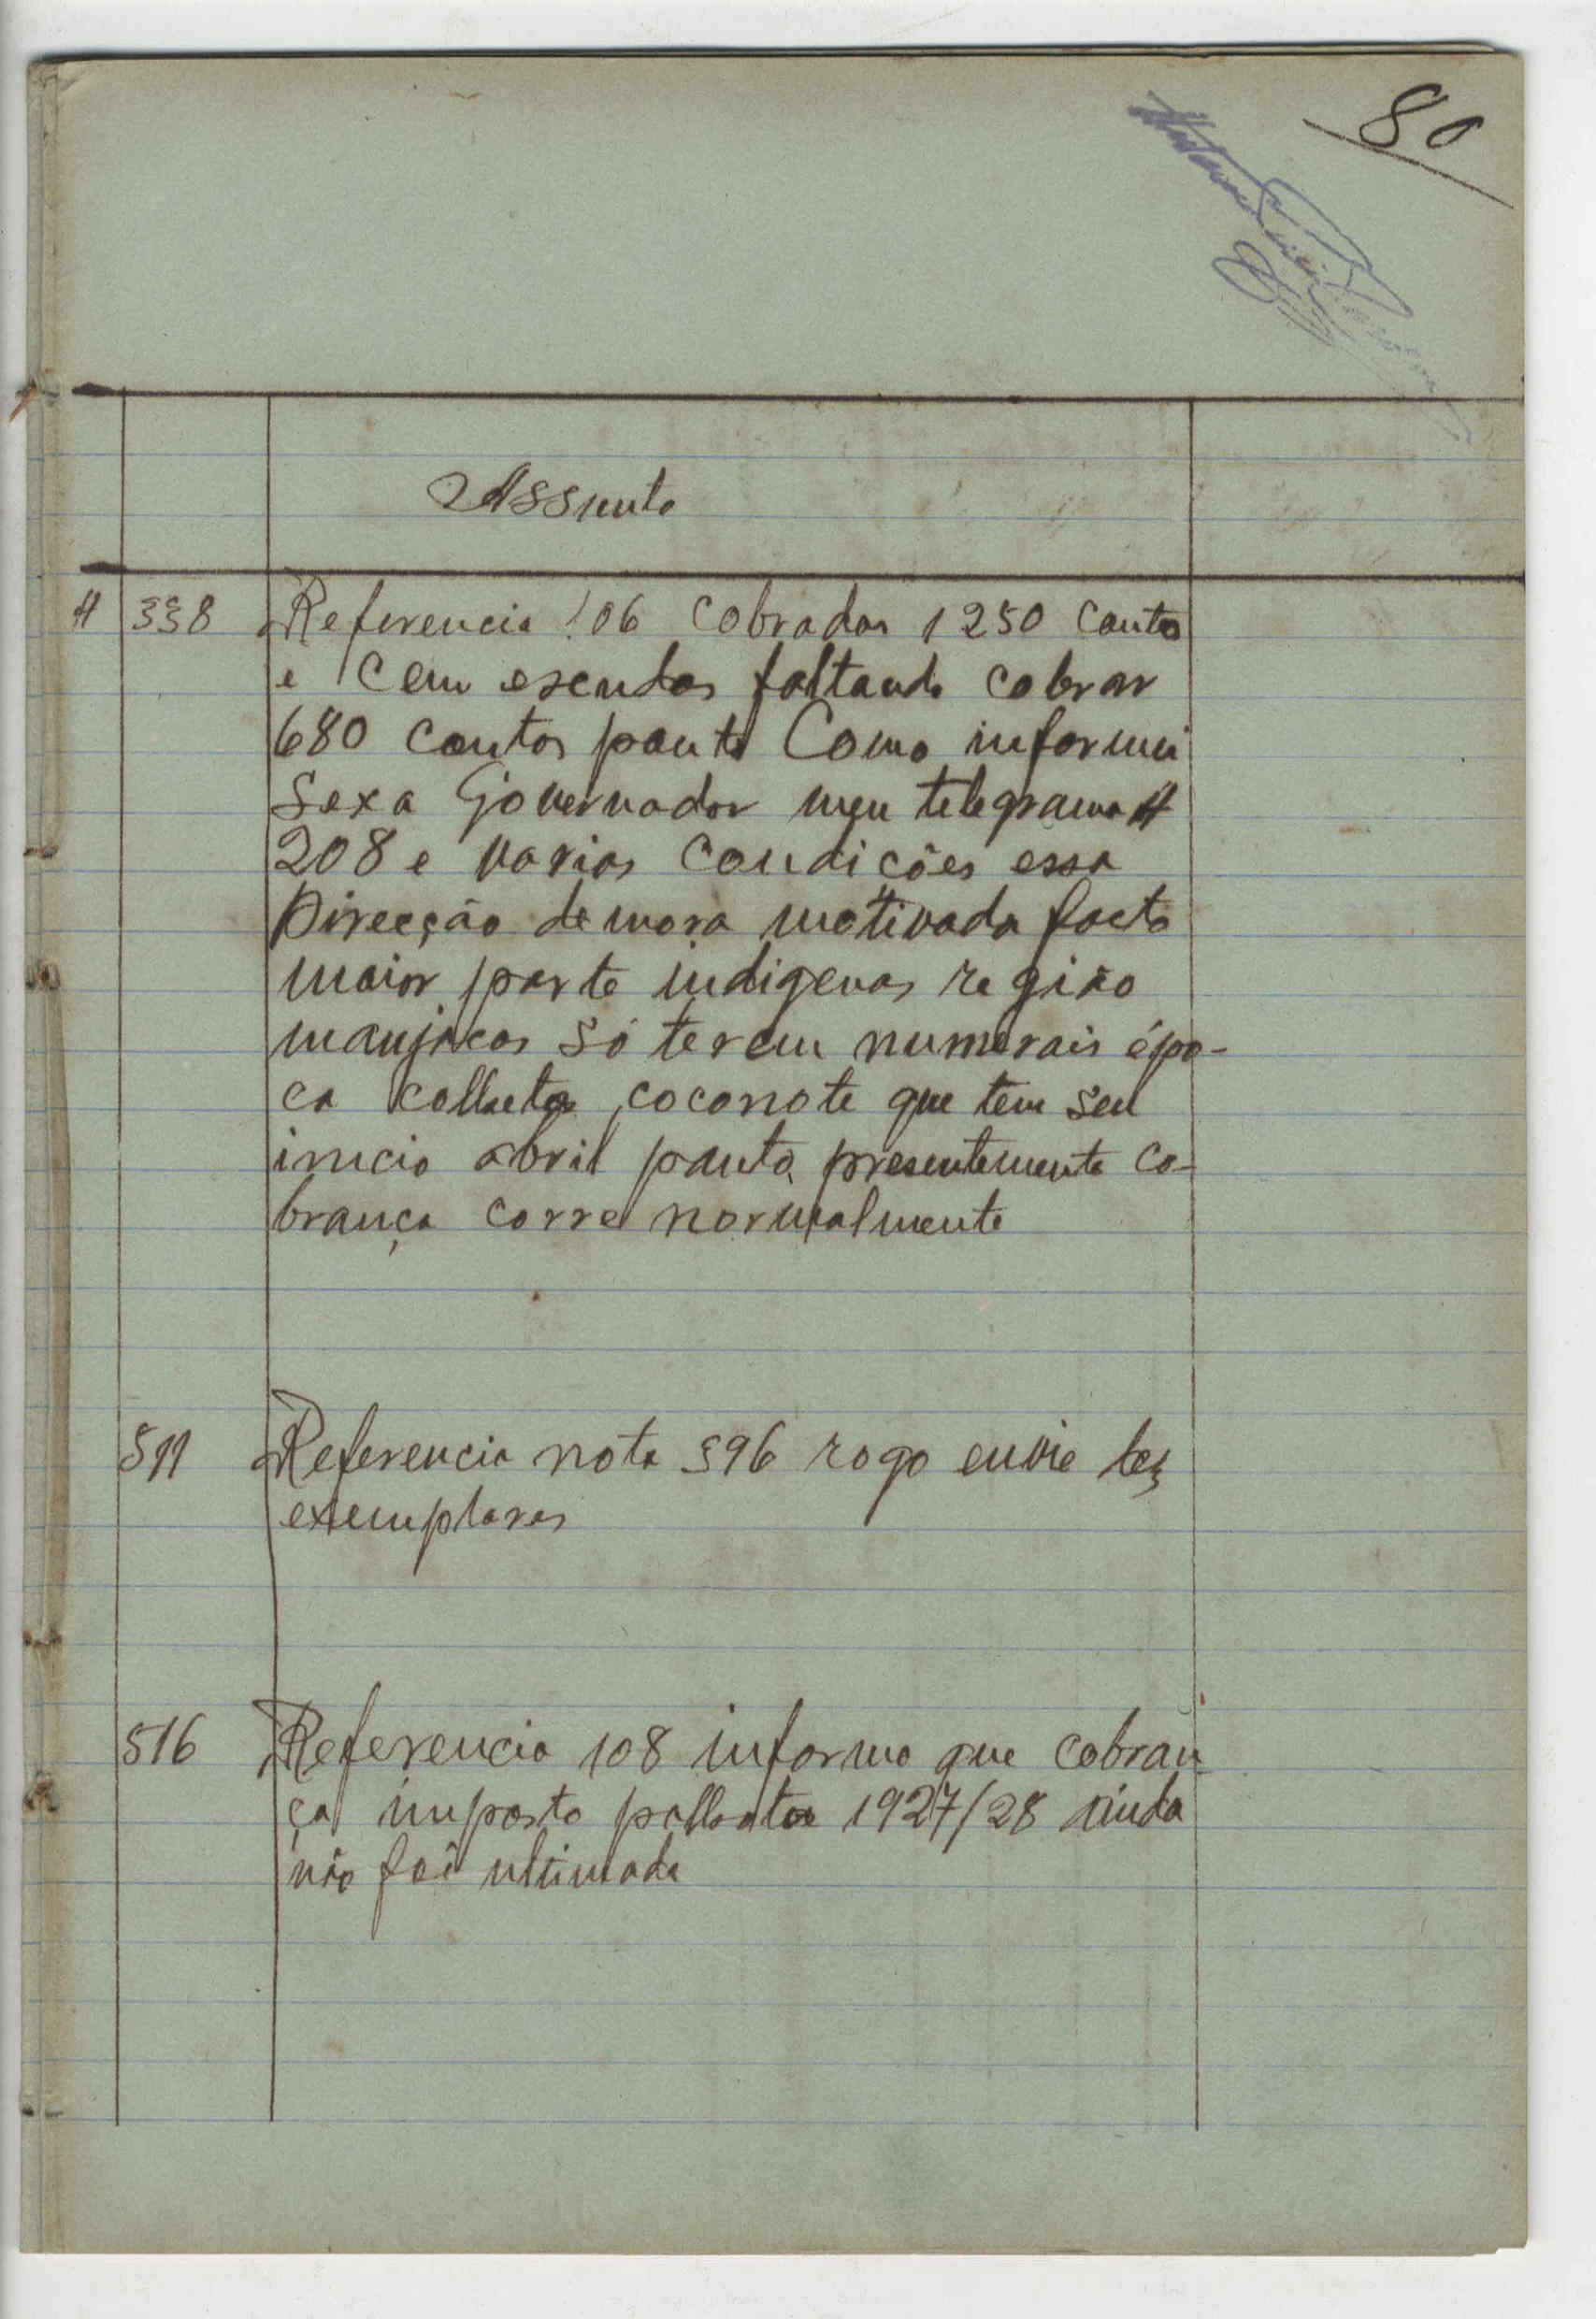 80
Assunto
A 338 Referencia 106 cobrados 1250 contos
e cem escudos faltando cobrar
680 contos ponto Como informei
Sexa Governador meu telegrama A
208 e varias condições essa
Direcção demora motivada facto
maior parte indigenas região
manjacos só terem numerais épo-
ca colheita coconote que tem seu
inicio abril ponto presentemente co-
brança corre normalmente
511 Referencia nota 596 rogo envie tez
exemplares
516 Referencia 108 informo que cobran-
ça imposto palhota 1927/28 ainda
não foi ultimada